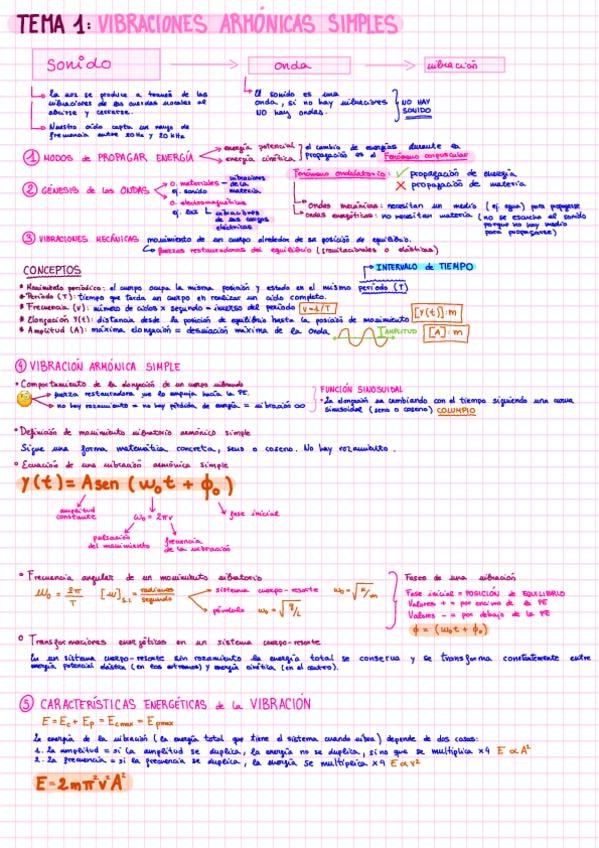 TEMA 1: VIBRACIONES ARMÓNICAS SIMPLES
Sonido → onda → vibración
La voz se produce a través de las vibraciones de las cuerdas vocales al abrirse y cerrarse.
Nuestro oído capta un rango de frecuencia entre 20 Hz y 20 kHz
El sonido es una onda, si no hay vibraciones NO hay ondas.
NO HAY SONIDO
① MODOS de PROPAGAR ENERGÍA
energía potencial
energía cinética
el cambio de energías durante la propagación es el Fenómeno corpuscular
Fenómeno ondulatorio: ✓ propagación de energía
✗ propagación de materia
② GÉNESIS de las ONDAS
o. materiales = vibraciones de la materia
ej. sonido
o. electromagnéticas
ej. luz
vibraciones de las cargas eléctricas
Ondas mecánicas: necesitan un medio (ej. agua) para propagarse
ondas energéticas: no necesitan materia (no se escucha el sonido porque no hay medio para propagarse)
③ VIBRACIONES MECÁNICAS movimiento de un cuerpo alrededor de su posición de equilibrio.
fuerzas restauradoras del equilibrio (gravitacionales o elásticas)
CONCEPTOS
INTERVALO de TIEMPO
* Movimiento periódico: el cuerpo ocupa la misma posición y estado en el mismo periodo (T)
* Período (T): tiempo que tarda un cuerpo en realizar un ciclo completo.
* Frecuencia (ν): número de ciclos x segundo = inverso del periodo ν=1/T
* Elongación Y(t): distancia desde la posición de equilibrio hasta la posición de movimiento [Y(t)]: m
* Amplitud (A): máxima elongación = desviación máxima de la onda
AMPLITUD
[A]: m
④ VIBRACIÓN ARMÓNICA SIMPLE
• Comportamiento de la elongación de un cuerpo vibrando
fuerza restauradora que lo empuja hacia la PE.
no hay rozamiento = no hay pérdida de energía = vibración ∞
FUNCIÓN SINUSOIDAL
• La elongación va cambiando con el tiempo siguiendo una curva sinusoidal (seno o coseno) COLUMPIO
• Definición de movimiento vibratorio armónico simple
Sigue una forma matemática concreta, seno o coseno. No hay rozamiento.
• Ecuación de una vibración armónica simple
y(t) = A sen (ω₀t + ϕ₀)
amplitud constante
ω₀ = 2πν
fase inicial
pulsación del movimiento
frecuencia de la vibración
• Frecuencia angular de un movimiento vibratorio
ω₀ = 2π/T
[ω]S.I. = radianes/segundo
sistema cuerpo-resorte ω₀ = √k/m
péndulo ω₀ = √g/L
Fases de una vibración
Fase inicial = POSICIÓN de EQUILIBRIO
Valores + = por encima de la PE
Valores - = por debajo de la PE
ϕ = (ω₀t + ϕ₀)
• Transformaciones energéticas en un sistema cuerpo-resorte
En un sistema cuerpo-resorte sin rozamiento la energía total se conserva y se transforma constantemente entre energía potencial elástica (en los extremos) y energía cinética (en el centro).
⑤ CARACTERÍSTICAS ENERGÉTICAS de la VIBRACIÓN
E = Ec + Ep = Ecmax = Epmax
La energía de la vibración (la energía total que tiene el sistema cuando vibra) depende de dos cosas:
1. La amplitud = si la amplitud se duplica, la energía no se duplica, sino que se multiplica x4 E ∝ A²
2. La frecuencia = si la frecuencia se duplica, la energía se multiplica x4 E ∝ ν²
E = 2mπ²ν²A²